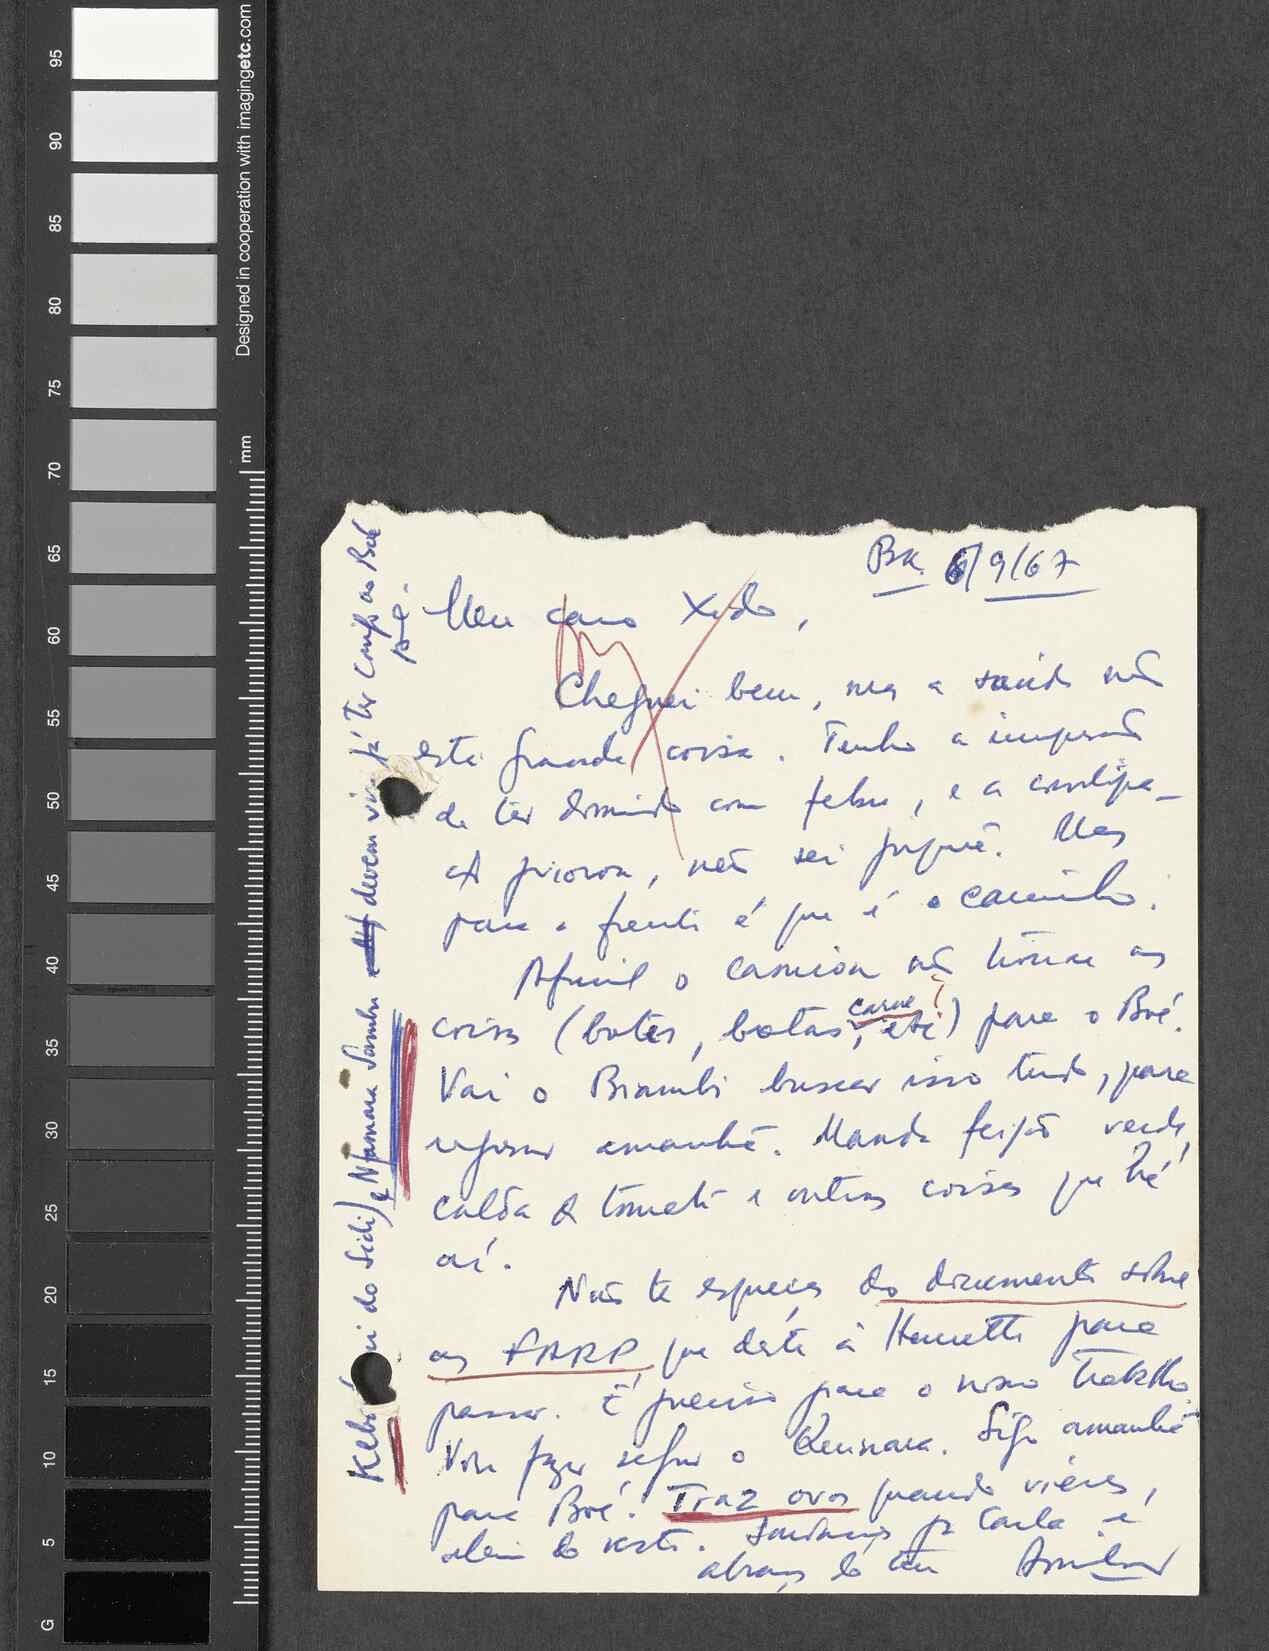 95
90
85
80
75
70
65
60
55
50
45
40
35
30
25
20
15
10
5
G
Designed in cooperation with imagingetc.com
mm
BK. 6/9/67
Meu caro Xido,
Cheguei bem, mas a saúde não
está grande coisa. Tenho a impressão
de ter dormido com febre, e a constipa-
piorou, não sei porquê. Mas
para a frente é que é o caminho.
Afinal o camion não trouxe as
coisas (botes, botas, carne!, etc) para o Boé.
Vai o Biambi buscar isso tudo, para
amanhã. Manda feijão verde,
calda de tomate e outras coisas que há
aí.
Não te esqueças do documento sobre
as FARP que deste à Henriette para
passar. É preciso para o nosso trabalho.
Vou fazer seguir o . Sigo amanhã
para Boé. Traz ovos quando vieres,
além do resto. Saudações pª Carla e
abraço do teu Amílcar
do Sidi) e N'famara Sambu devem vir já ter comigo ao Boé